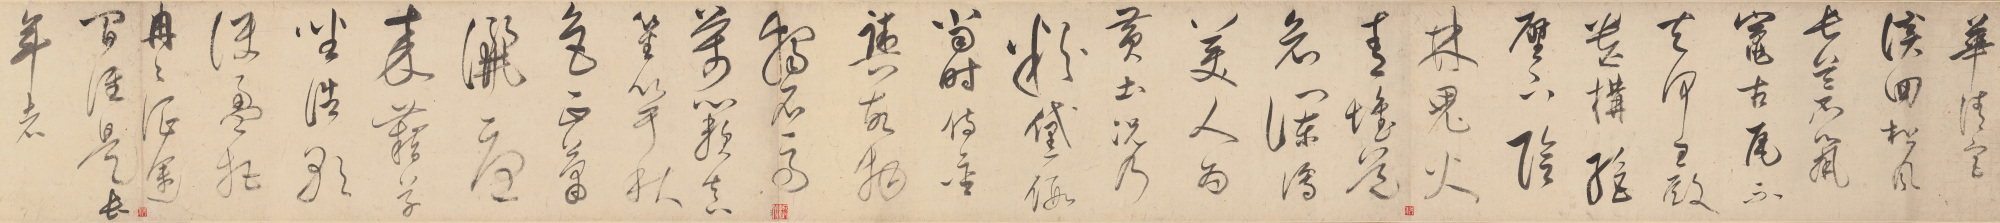 華清宮
溪回松風
長蒼鼠
竄古瓦不
知何王殿
遺構絕
壁下陰
林鬼火
青壞道
哀湍瀉
美人為
黃土況乃
粉黛假
當時侍金
輿故物
獨石馬
萬籟真
笙竽秋
色正蕭
灑憂
來藉草
坐浩歌
淚盈把
冉冉征途
間誰是長
年者